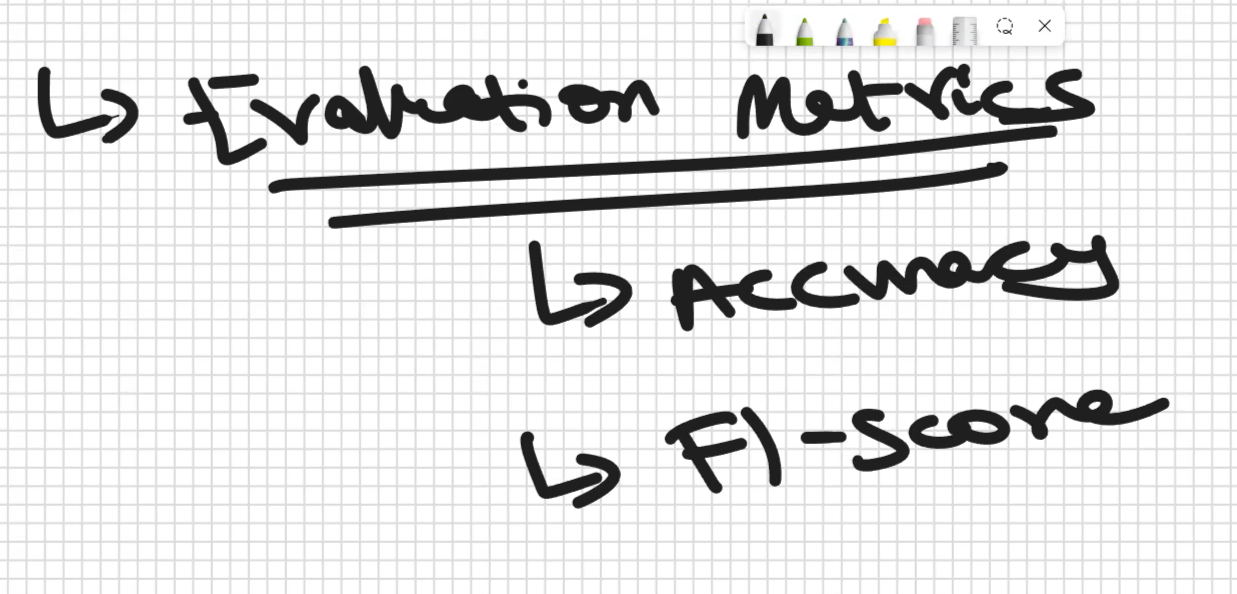 ↳ Evaluation Metrics
↳ Accuracy
↳ F1-Score